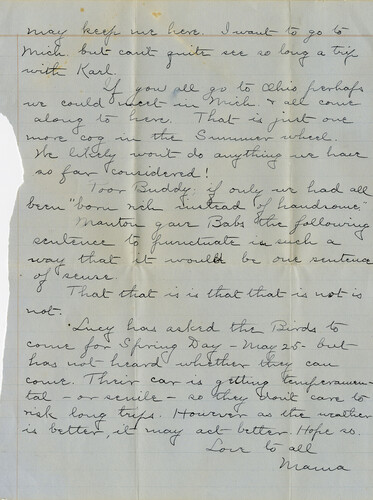 may keep me here. I want to go to
Mich. but can't quite see so long a trip
with Karl.
If you all go to Ohio perhaps
we could meet in Mich. & all come
along to here. That is just one
more cog in the Summer wheel.
We likely won't do anything we have
so far considered!
Poor Buddy, if only we had all
been "born rich instead of handsome."
Manton gave Babs the following
sentence to punctuate in such a
way that it would be one sentence
of sense.
That that is is that that is not is
not.
Lucy has asked the Birds to
come for Spring Day - May 25 - but
has not heard whether they can
come. Their car is getting temperamen-
tal - or senile - so they don't care to
risk long trips. However as the weather
is better, it may act better. Hope so.
Love to all
Mama